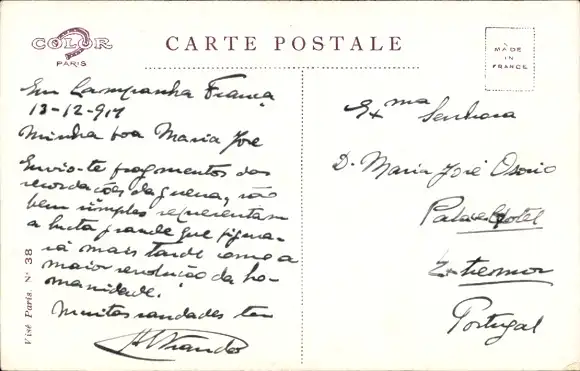 COLOR
PARIS
CARTE POSTALE
MADE
IN
FRANCE
Em Campanha França
13-12-917
Minha boa Maria José
Envio-te fragmentos das
recordações da guerra, são
bem simples representam
a lucta grande que figura-
rá mais tarde como a
maior revolução da hu-
manidade.
Muitas saudades teu
Exma Senhora
D. Maria José Osorio
Palace Hotel
Extremoz
Portugal
Visé Paris. No 38